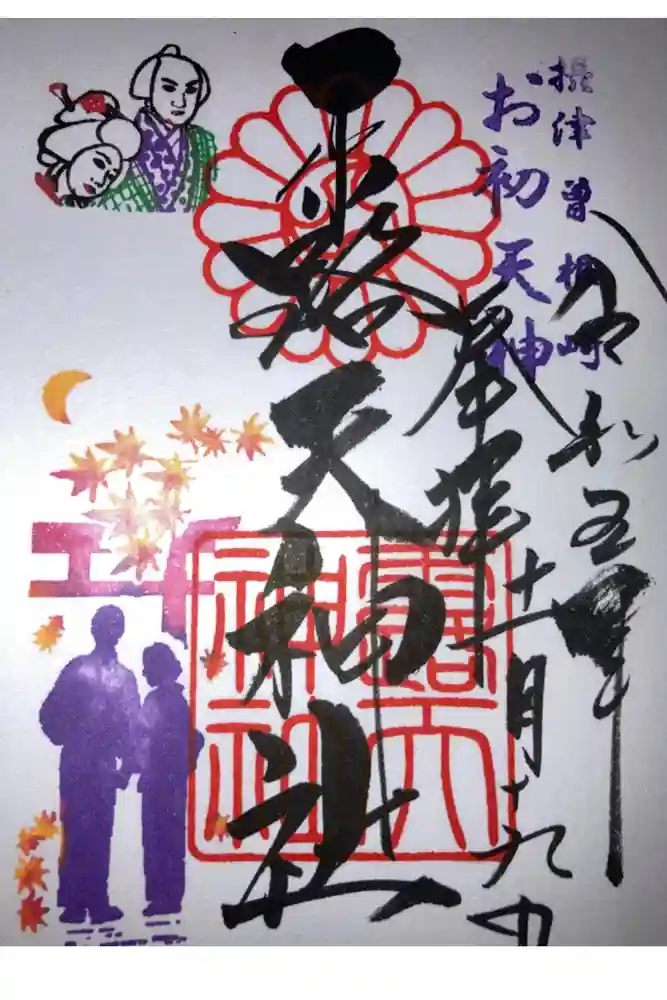 摂津曽根崎
お初天神
令和五年
奉拝十一月十九日
露天神社
露天
神社